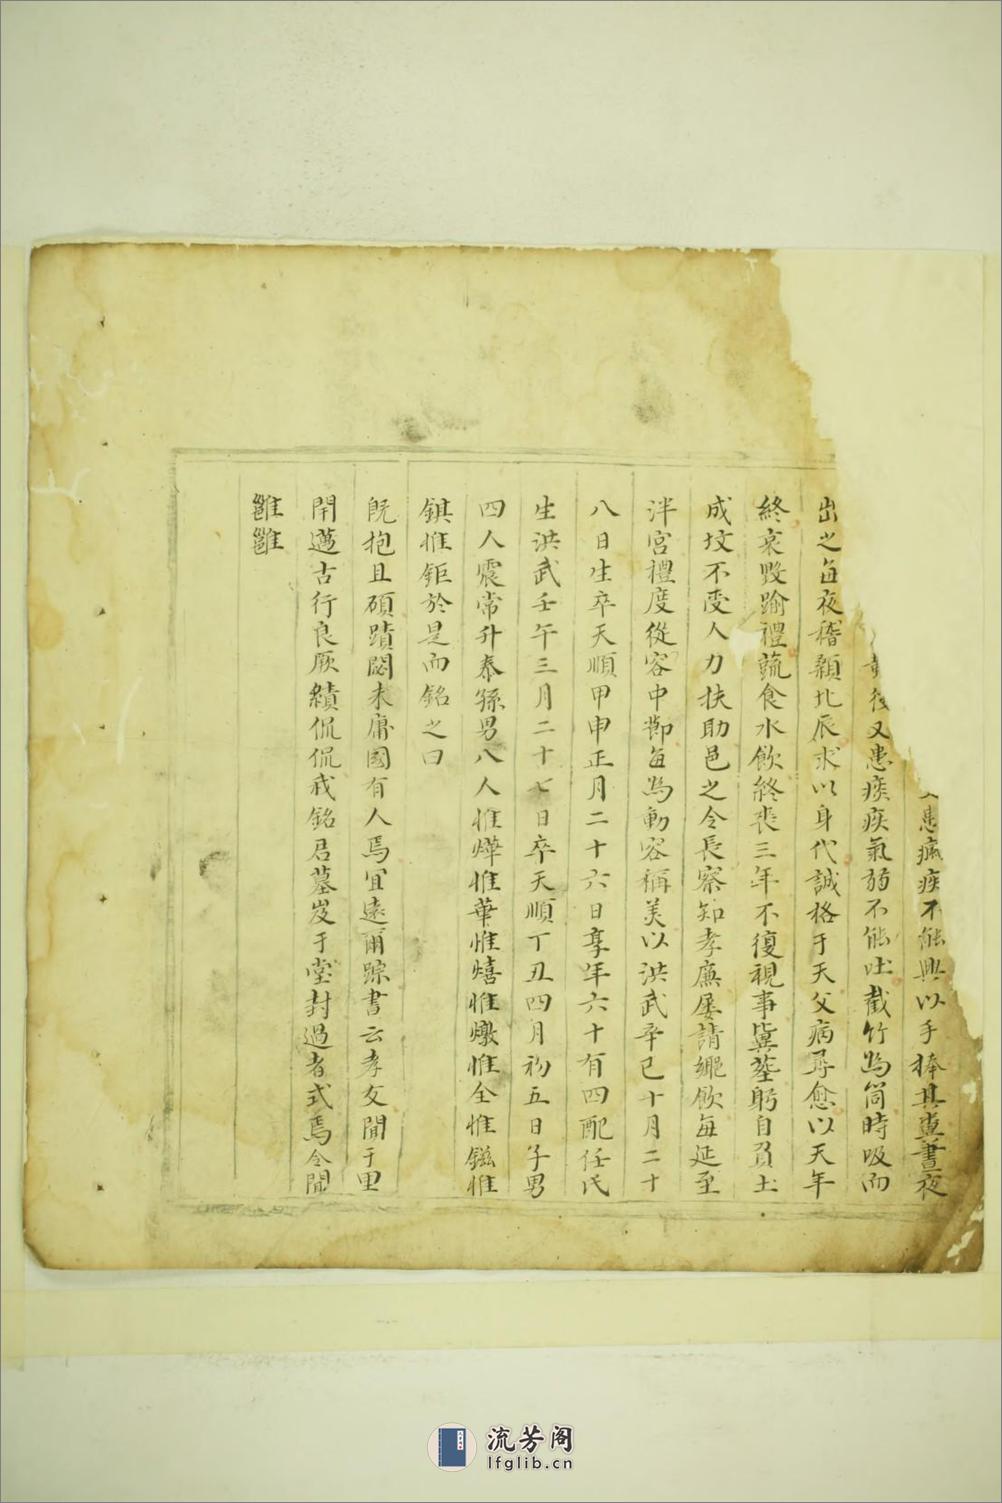 患瘋疾不能興以手捧其晝夜
後又患痰疾氣弱不能吐截竹為筒時吸而
出之每夜稽顙北辰求以身代誠格于天父病尋愈以天年
終哀毀踰禮蔬食水飲終喪三年不復視事冀塟躬自負土
成坟不受人力扶助邑之令長察知孝廉屡請鄉飲每延至
泮宮禮度從容中節每為動容稱美以洪武辛巳十月二十
八日生卒天順甲申正月二十六日享年六十有四配任氏
生洪武壬午三月二十七日卒天順丁丑四月初五日子男
四人震常升泰孫男八人惟燁惟華惟熺惟燉惟全惟鎡惟
錤惟鉅於是而銘之曰
旣抱且碩蹟閟未庸國有人焉宜遠爾踪書云孝友聞于里
閈邁古行良厥績侃侃我銘君墓岌于堂封過者式焉令聞
雝雝
流芳阁
lfglib.cn